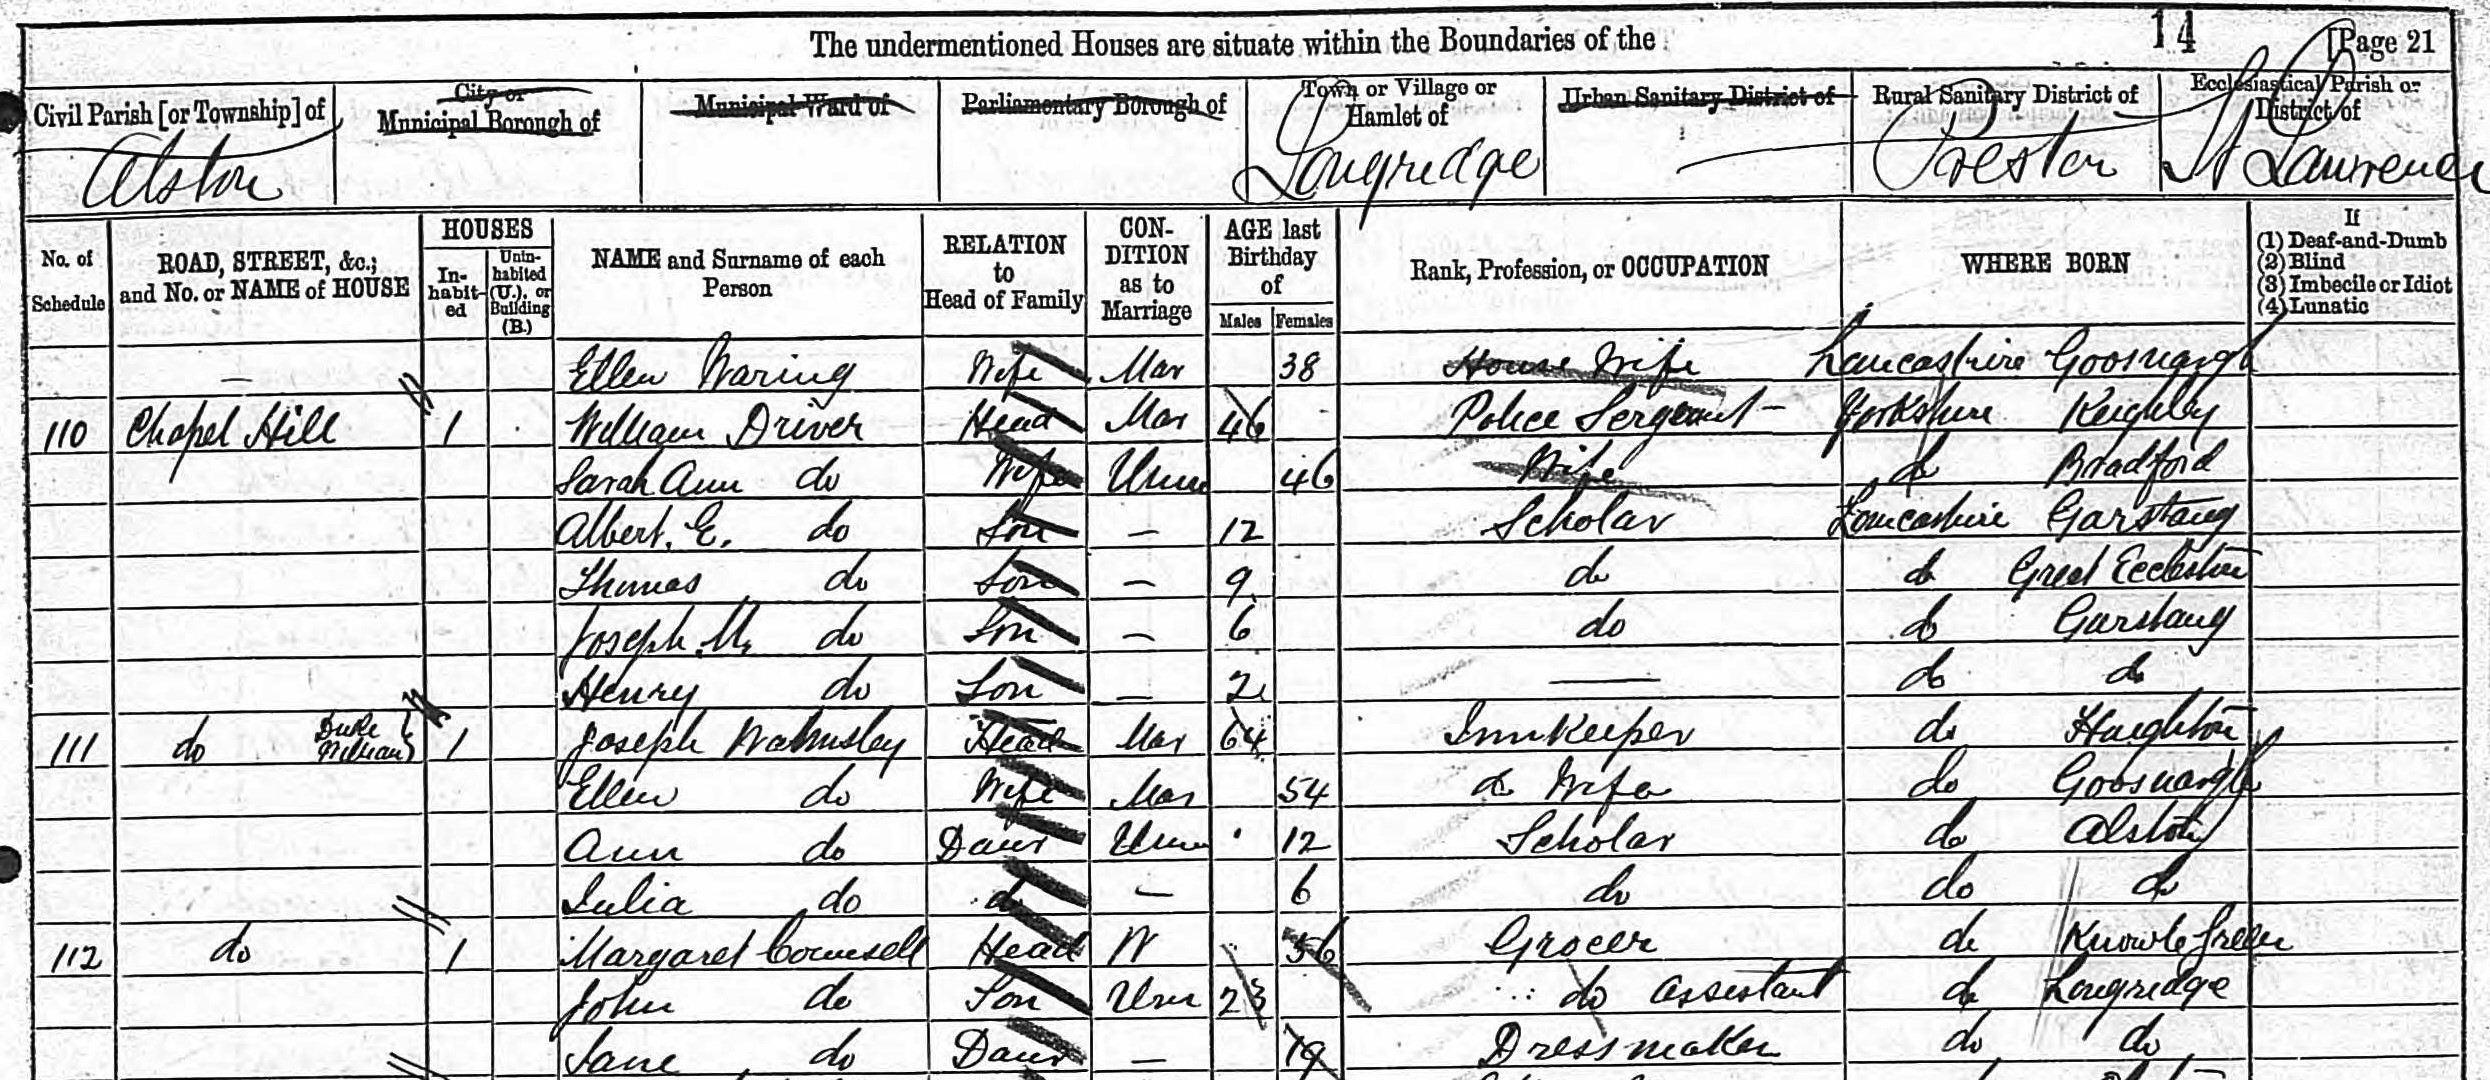 The undermentioned Houses are situate within the Boundaries of the
14
[Page 21
Civil Parish [or Township] of
Alston
City or
Municipal Borough of
Municipal Ward of
Parliamentary Borough of
Town or Village or
Hamlet of
Longridge
Urban Sanitary District of
Rural Sanitary District of
Preston
Ecclesiastical Parish or
District of
St Lawrence
No. of
Schedule
ROAD, STREET, &c.,
and No. or NAME of HOUSE
HOUSES
In-
habit-
ed
Unin-
habited
(U.), or
Building
(B.)
NAME and Surname of each
Person
RELATION
to
Head of Family
CON-
DITION
as to
Marriage
AGE last
Birthday
of
Males
Females
Rank, Profession, or OCCUPATION
WHERE BORN
If
(1) Deaf-and-Dumb
(2) Blind
(3) Imbecile or Idiot
(4) Lunatic
— Ellen Waring Wife Mar 38 House Wife Lancashire Goosnargh
110 Chapel Hill 1 William Driver Head Mar 46 Police Sergeant – Yorkshire Keighley
Sarah Ann do Wife Unm 46 Wife do Bradford
Albert. E. do Son — 12 Scholar Lancashire Garstang
Thomas do Son — 9 do do Great Eccleston
Joseph M. do Son — 6 do do Garstang
Henry do Son — 2 — do do
111 do Duke William 1 Joseph Walmsley Head Mar 64 Innkeeper do Haighton
Ellen do Wife Mar 54 do Wife do Goosnargh
Ann do Daur Unm 12 Scholar do Alston
Julia do do — 6 do do do
112 do 1 Margaret Counsell Head W 56 Grocer do Knowle Green
John do Son Unm 23 do Assistant do Longridge
Jane do Daur — 19 Dressmaker do do